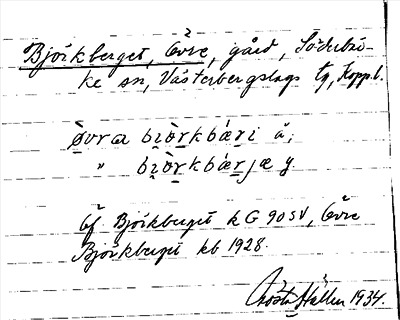 Björkberget, Övre, gård, Söderbär-
ke sn, Västerbergslags tg, Kopp.l.
òvra bi̯ò̱rkbári å,
" bi̯ò̱rkbárjæ y.
Öf. Björkberget k G 90 SV, Övre
Björkberget kb 1928.
Gösta Hallén 1934.